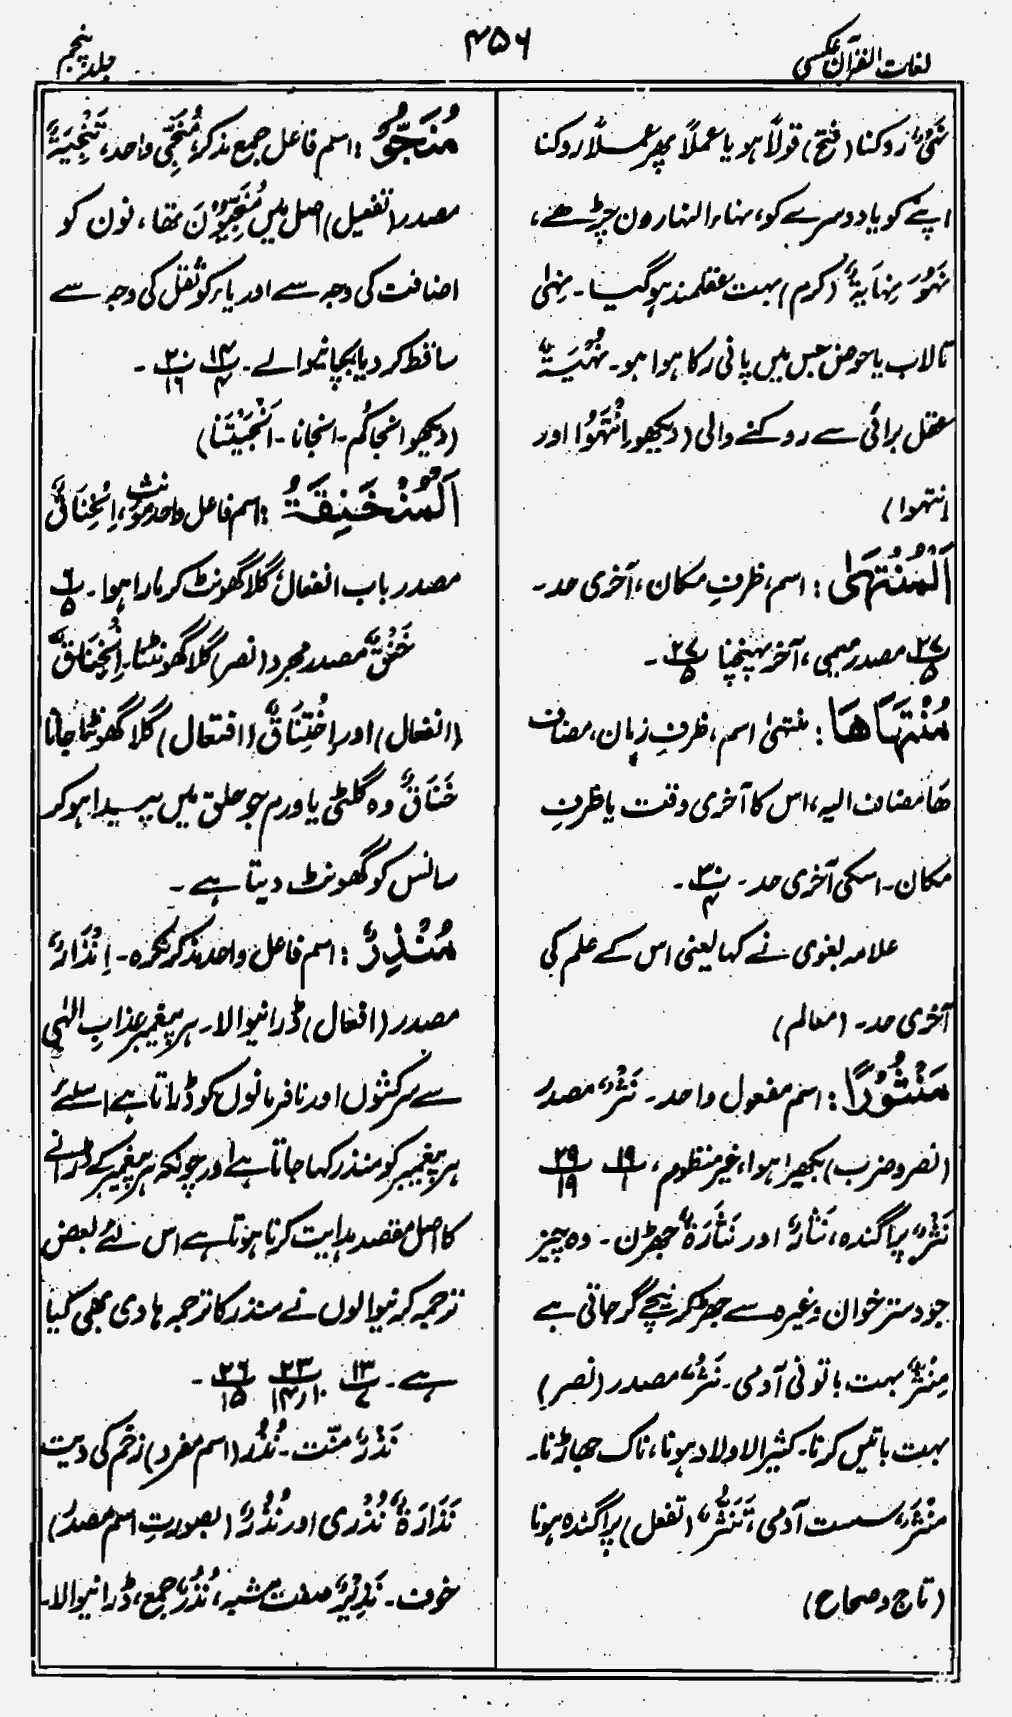 لغات القرآن عکسی
۴۵۶
جلد پنجم
نَہْیٌ روکنا (فتح) قولاً ہو یا عملاً پھر عملاً روکنا
اپنے کو یا دوسرے کو، نہاء النہار دن چڑھے،
نَہُوَ نِہَایَۃً (کرم) بہت عقلمند ہو گیا۔ نِہیٰ
تالاب یا حوض جس میں پانی رکا ہوا ہو۔ نُہْیَۃٌ
عقل برائی سے روکنے والی (دیکھو اِنْتَہَوْا اور
انتھوا)
اَلْمُنْتَہٰی : اسم، ظرفِ مکان، آخری حد۔
۲۷/۵ مصدر میمی، آخر پہنچنا ۲۷/۵ ۔
مُنْتَہَاھَا : منتہیٰ اسم، ظرفِ زمان، مضاف
ھَا مضاف الیہ، اس کا آخری وقت یا ظرفِ
مکان۔ اسکی آخری حد۔ ۳۰/۴ ۔
علامہ بغوی نے کہا یعنی اس کے علم کی
آخری حد۔ (معالم)
مَنْثُوْرًا : اسم مفعول واحد۔ نَثْرٌ مصدر
(نصر و ضرب) بکھیرا ہوا، غیر منظوم، ۱۹/۱ ۲۹/۱۹
نَثْرٌ پراگندہ، نَثَارٌ اور نَثَارَۃٌ جھڑن۔ وہ چیز
جو دسترخوان وغیرہ سے جھڑ کر نیچے گر جاتی ہے
مِنْثَرٌ بہت باتونی آدمی۔ نَثْرٌ مصدر (نصر)
بہت باتیں کرنا۔ کثیر الاولاد ہونا، ناک جھاڑنا۔
مَنْثَرٌ سست آدمی، تَنَثُّرٌ (تفعل) پراگندہ ہونا
(تاج و صحاح)
مُنَجُّوْ : اسم فاعل جمع مذکر، مُنَجِّیْ واحد، تَنْجِیَۃٌ
مصدر (تفعیل) اصل میں مُنَجِّیُوْنَ تھا، نون کو
اضافت کی وجہ سے اور یاء کو ثقل کی وجہ سے
ساقط کر دیا بچانیوالے۔ ۱۴/۴ ۲۰/۱۶ ۔
(دیکھو انجاکم۔ انجانا۔ اَنْجَیْتَنَا)
اَلْمُنْخَنِقَۃُ : اسم فاعل واحد مؤنث، اِنْخِنَاقٌ
مصدر باب انفعال گلا گھونٹ کر مارا ہوا۔ ۶/۵
خَنْقٌ مصدر مجرد (نصر) گلا گھونٹنا۔ اِنْخِنَاقٌ
(انفعال) اور اِخْتِنَاقٌ (افتعال) گلا گھونٹا جانا
خَنَاقٌ وہ گلٹی یا ورم جو حلق میں پیدا ہو کر
سانس کو گھونٹ دیتا ہے۔
مُنْذِرٌ : اسم فاعل واحد مذکر نکرہ۔ اِنْذَارٌ
مصدر (افعال) ڈرانیوالا۔ ہر پیغمبر عذابِ الٰہی
سے سرکشوں اور نافرمانوں کو ڈراتا ہے اسلئے
ہر پیغمبر کو منذر کہا جاتا ہے اور چونکہ ہر پیغمبر کے ڈرانے
کا اصل مقصد ہدایت کرنا ہوتا ہے اس لئے بعض
ترجمہ کرنیوالوں نے منذر کا ترجمہ ہادی بھی کیا
ہے۔ ۱۳/۷ ۲۳/۱۰، ۱۴ ۲۶/۱۵ ۔
نَذْرٌ منّت۔ نُذُر (اسم مفرد) زخم کی دیت
نَذَارَۃٌ نُذْرٰی اور نُذُرٌ (بصورتِ اسم مصدر)
خوف۔ نَذِیْرٌ صفت مشبہ، نُذُرٌ جمع، ڈرانیوالا۔